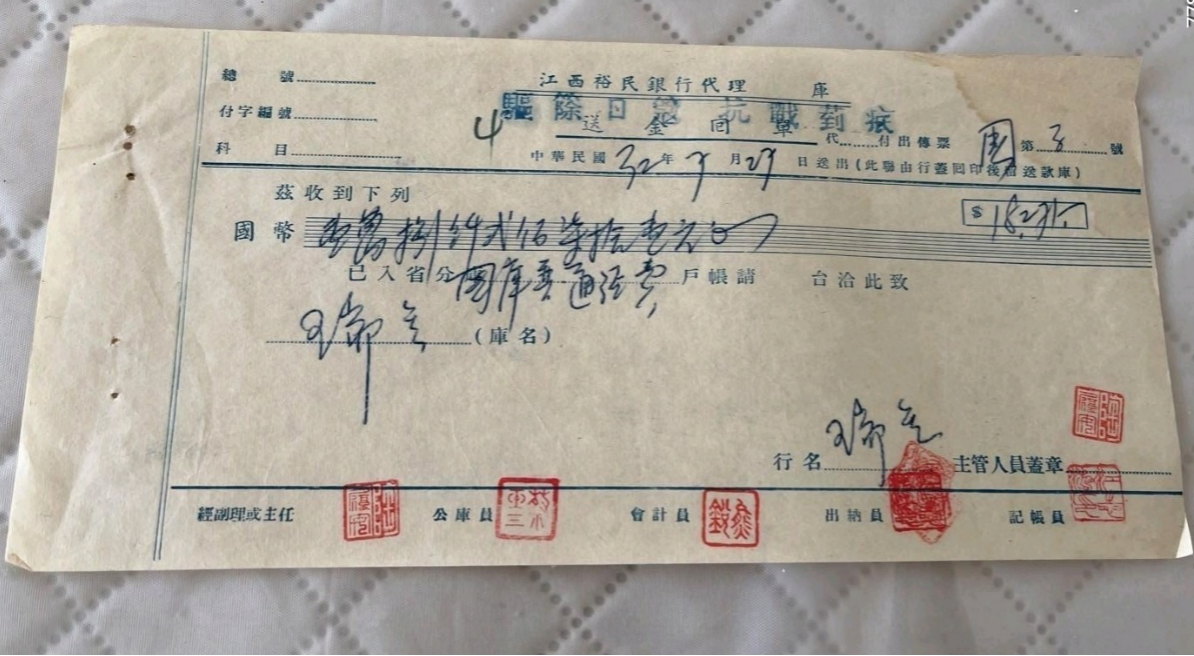 總 號
江西裕民銀行代理 庫
付字編號
驅除日寇 抗戰到底
4 送金回單
代 付出傳票 國 第 3 號
科 目
中華民國 32 年 7 月 27 日送出(此聯由行蓋回印後 送款庫)
茲收到下列
國幣 壹萬捌仟弍佰柒拾壹元
$ 18,271.
已入省分國庫普通經費戶帳請 台洽此致
瑞金
(庫名)
行名 瑞金 主管人員蓋章
經副理或主任 公庫員 會計員 出納員 記帳員